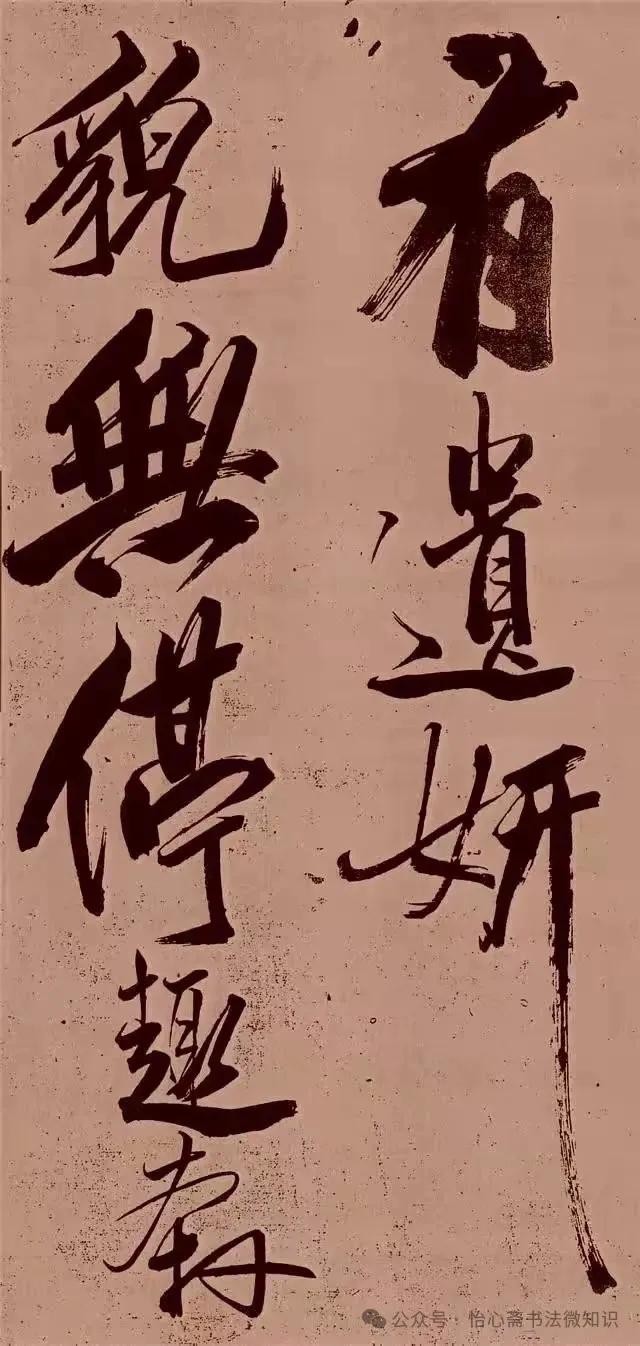 有遺妍
貌無停趣奔
公众号 · 怡心斋书法微知识